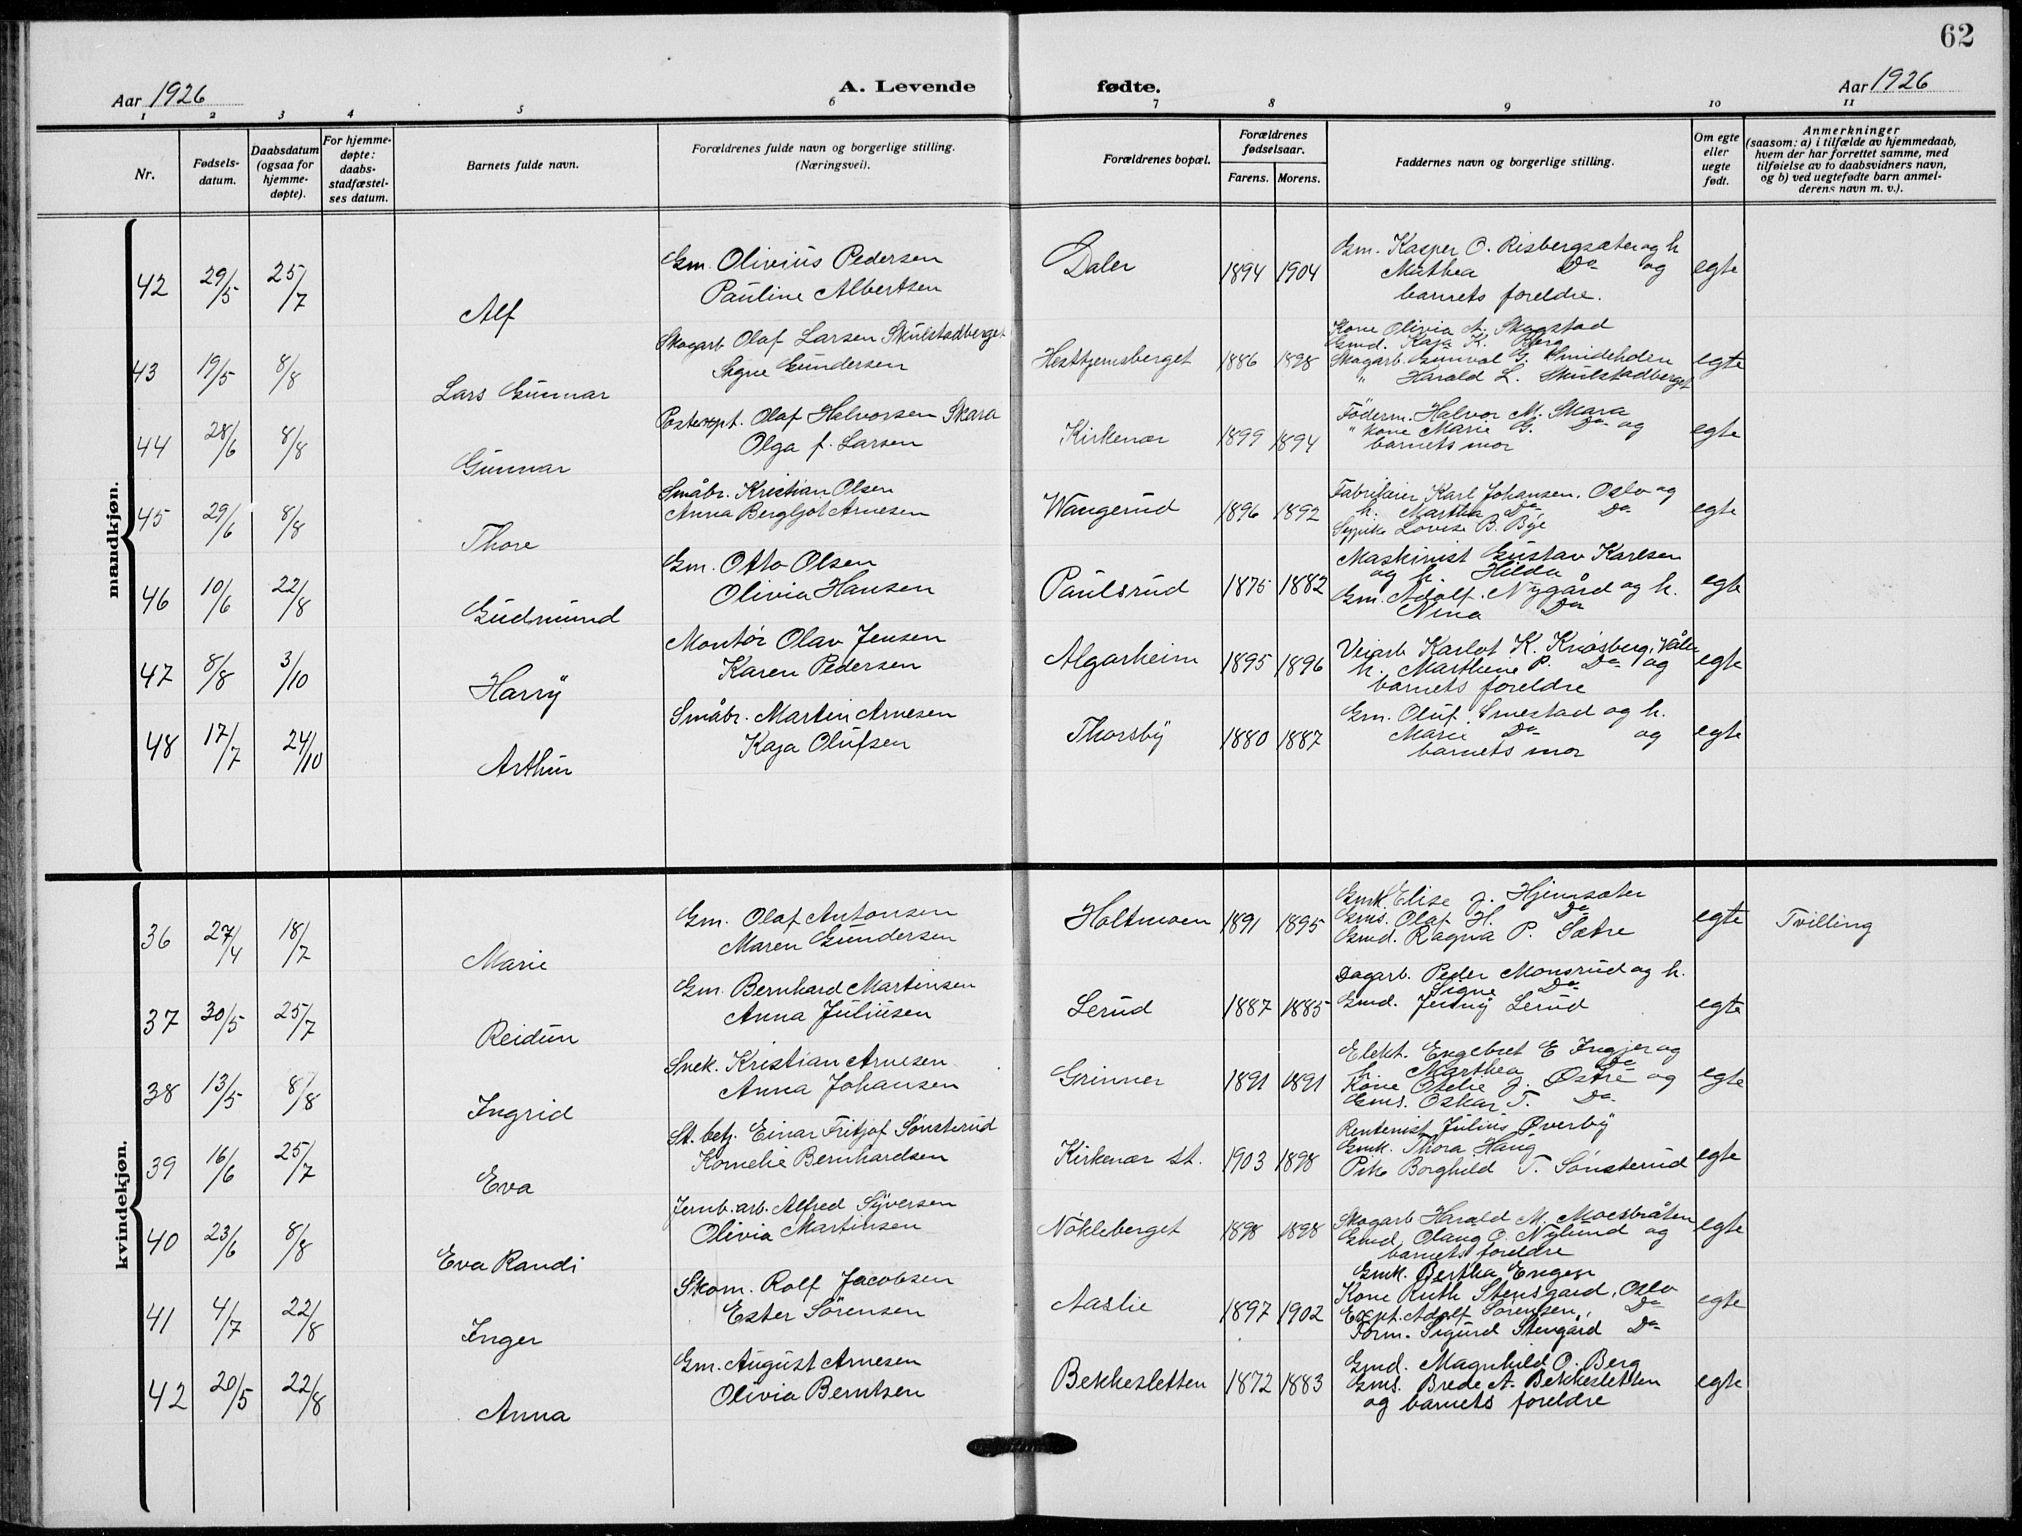 62
Aar 1926
A. Levende fødte.
Aar 1926
1 2 3 4 5 6 7 8 9 10 11
Nr.
Fødsels-
datum.
Daabsdatum
(ogsaa for
hjemme-
døpte).
For hjemme-
døpte:
daabs-
stadfæstel-
ses datum.
Barnets fulde navn.
Forældrenes fulde navn og borgerlige stilling.
(Næringsvei).
Forældrenes bopæl.
Forældrenes
fødselsaar.
Farens. Morens.
Faddernes navn og borgerlige stilling.
Om egte
eller
uegte
født.
Anmerkninger
(saasom: a) i tilfælde av hjemmedaab,
hvem der har forrettet samme, med
tilføielse av to daabsvidners navn,
og b) ved uegtefødte barn anmel-
derens navn m. v.).
mandkjøn.
42 29/5 25/7 Alf
Gm. Olivius Pedersen
Pauline Albertsen
Daler 1894 1904
Gm. Kasper O. Risbergsæter og h
Mathea Do og
barnets foreldre.
egte
43 19/5 8/8 Lars Gunnar
Skogarb Olaf Larsen Skulstadberget
Signe Gundersen
Hesttjernsberget 1886 1898
Kone Olivia A. Skogstad
Gmd. Kaja K. Berg
Skogarb. Gunval G.
" Harald L. Skulstadberget
egte
44 28/6 8/8 Gunnar
Postexpt. Olaf Halvorsen Skara
Olga f. Larsen
Kirkenær 1899 1894
Föderm. Halvor M. Skara
" kone Marie G. Do og
barnets mor
egte
45 29/6 8/8 Thore
Småbr. Kristian Olsen
Anna Bergljot Arnesen
Wangerud 1896 1892
Fabrikeier Karl Johansen, Oslo og
h. Martha Do Do
Sypike Lovise B. Bye
egte
46 10/6 22/8 Gudmund
Gm. Otto Olsen
Olivia Hansen
Paulsrud 1875 1882
Maskinist Gustav Karlsen
og h. Hilda
Gm. Adolf Nygård og h.
Nina Do
egte
47 8/8 3/10 Harry
Montør Olav Jensen
Karen Pedersen
Algarheim 1895 1896
Veiarb Karlot K. Knosberg, Våler
h. Marthene P. Do og
barnets foreldre
egte
48 17/7 24/10 Arthur
Småbr. Martin Arnesen
Kaja Olufsen
Thorsby 1880 1887
Gm. Oluf Smestad og h.
Marie Do og
barnets mor
egte
kvindekjøn.
36 27/4 18/7 Marie
Gm. Olaf Antonsen
Maren Gundersen
Holtmoen 1891 1895
Gmk. Elise J. Hjemsæter
Gms. Olaf H. Do
Gmd. Ragna P. Sætre
egte Tvilling
37 30/5 25/7 Reidun
Gm. Bernhard Martinsen
Anna Juliusen
Lerud 1887 1885
Dagarb. Peder Monsrud og h.
Signe Do
Gmd. Jenny Lerud
egte
38 13/5 8/8 Ingrid
Snek. Kristian Arnesen
Anna Johansen
Grinner 1891 1891
Elekt. Engebret E Ingjer og
h. Marthea Do
Kone Otelie J. Østre og
Gms. Oskar T. Do
egte
39 16/6 25/7 Eva
St. betj. Einar Fritjof Sønsterud
Kornelie Bernhardsen
Kirkenær st. 1903 1898
Rentenist Julius Øverby
Gmk. Thora Haug
Pike Borghild T. Sønsterud
egte
40 23/6 8/8 Eva Randi
Jernb. arb. Alfred Syversen
Olivia Martinsen
Nökleberget 1898 1898
Skogarb Harald M. Moesbråten
Gmd. Olaug O. Nylund og
barnets foreldre
egte
41 4/7 22/8 Inger
Skom. Rolf Jacobsen
Ester Sörensen
Aaslie 1897 1902
Gmk. Bertha Engen
Kone Ruth Stensgard, Oslo
Expt. Adolf Sörensen, Do
Form. Sigurd Stengård Do
egte
42 20/5 22/8 Anna
Gm. August Arnesen
Olivia Berntsen
Bekkesletten 1872 1883
Gmd. Magnhild O. Berg
Gms. Brede A. Bekkesletten
og barnets foreldre
egte